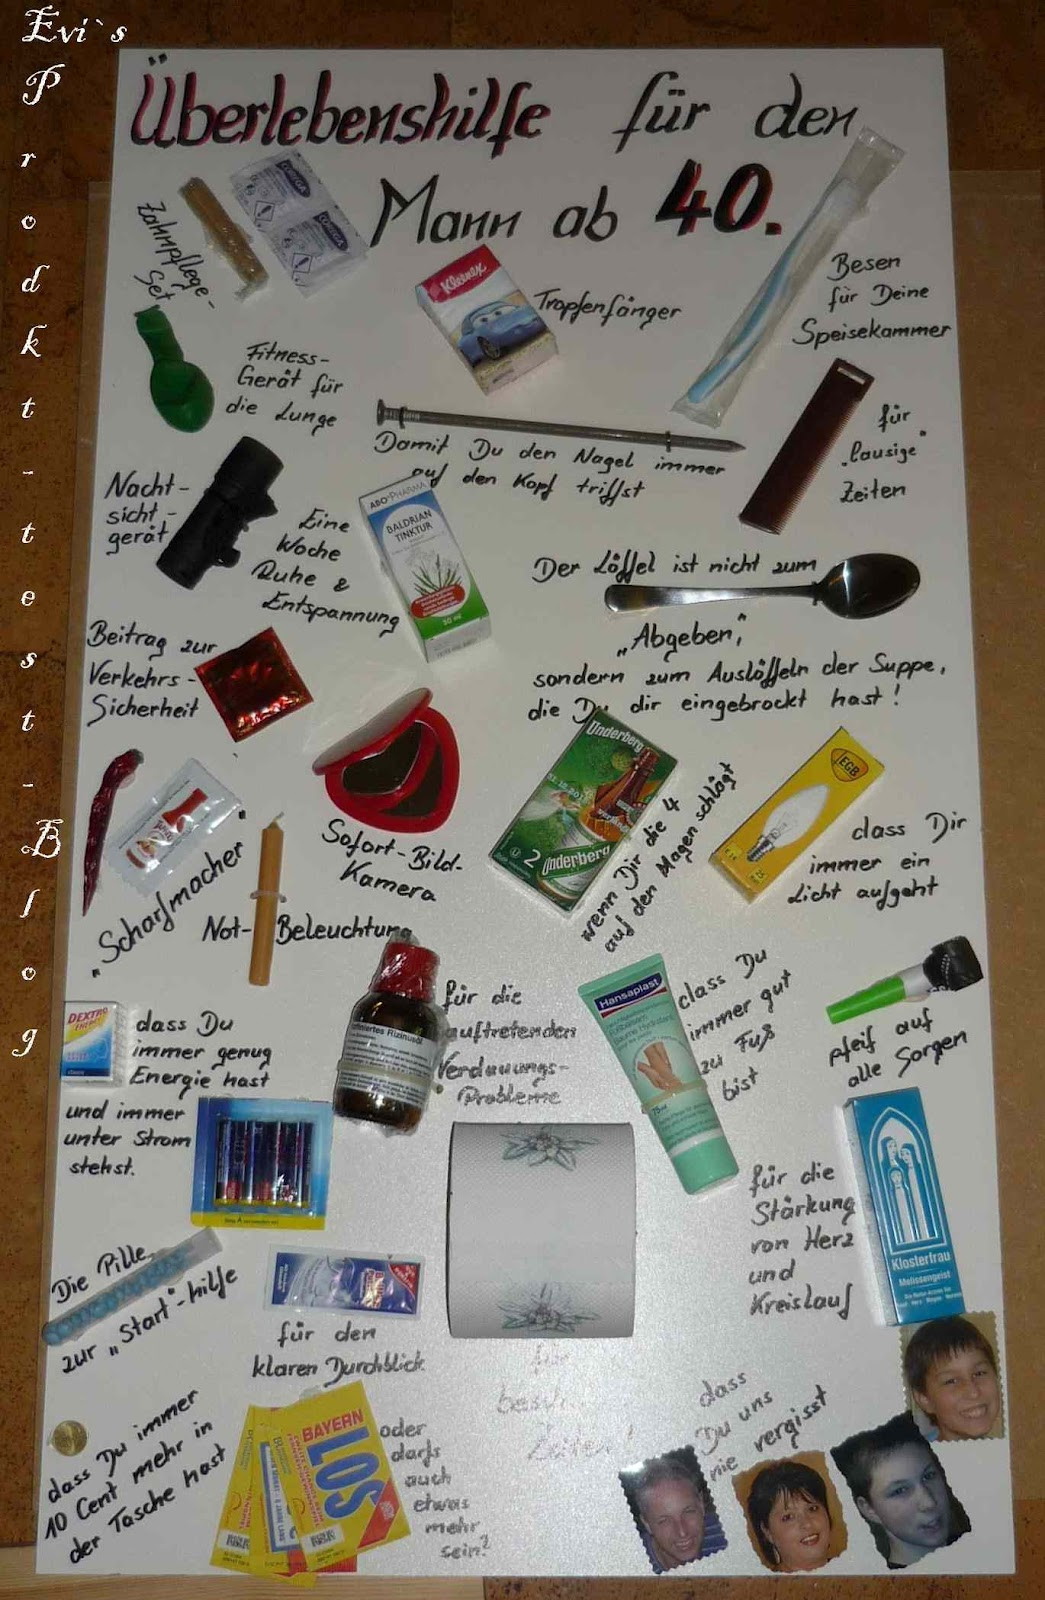 Evi`s
Prodkt-test-Blog
Überlebenshilfe für den
Mann ab 40.
Zahnpflege-
Set
OMEGA
OMEGA
Kleenex
Tropfenfänger
Besen
für Deine
Speisekammer
Fitness-
Gerät für
die Lunge
Damit Du den Nagel immer
auf den Kopf triffst
für
"lausige"
Zeiten
Nacht-
sicht-
gerät
Eine
Woche
Ruhe &
Entspannung
ABO-PHARMA
BALDRIAN
TINKTUR
30 ml
Der Löffel ist nicht zum
„Abgeben",
sondern zum Auslöffeln der Suppe,
die Du dir eingebrockt hast!
Beitrag zur
Verkehrs-
Sicherheit
Sofort-Bild-
Kamera
Underberg
2 Underberg
wenn Dir die 4
auf den Magen schlägt
EGB
dass Dir
immer ein
Licht aufgeht
„Scharfmacher"
Not-Beleuchtung
DEXTRO
ENERGY
classic
dass Du
immer genug
Energie hast
und immer
unter Strom
stehst.
Rizinusöl
für die
auftretenden
Verdauungs-
Probleme
Hansaplast
75 ml
dass Du
immer gut
zu Fuß
bist
pfeif auf
alle Sorgen
für die
Stärkung
von Herz
und
Kreislauf
Klosterfrau
Melissengeist
Die Pille
zur „Start"-hilfe
für den
klaren Durchblick
für
Zeiten!
dass Du immer
10 Cent mehr in
der Tasche hast
BAYERN
LOS
oder
darfs
auch
etwas
mehr
sein?
dass
Du uns
nie vergisst